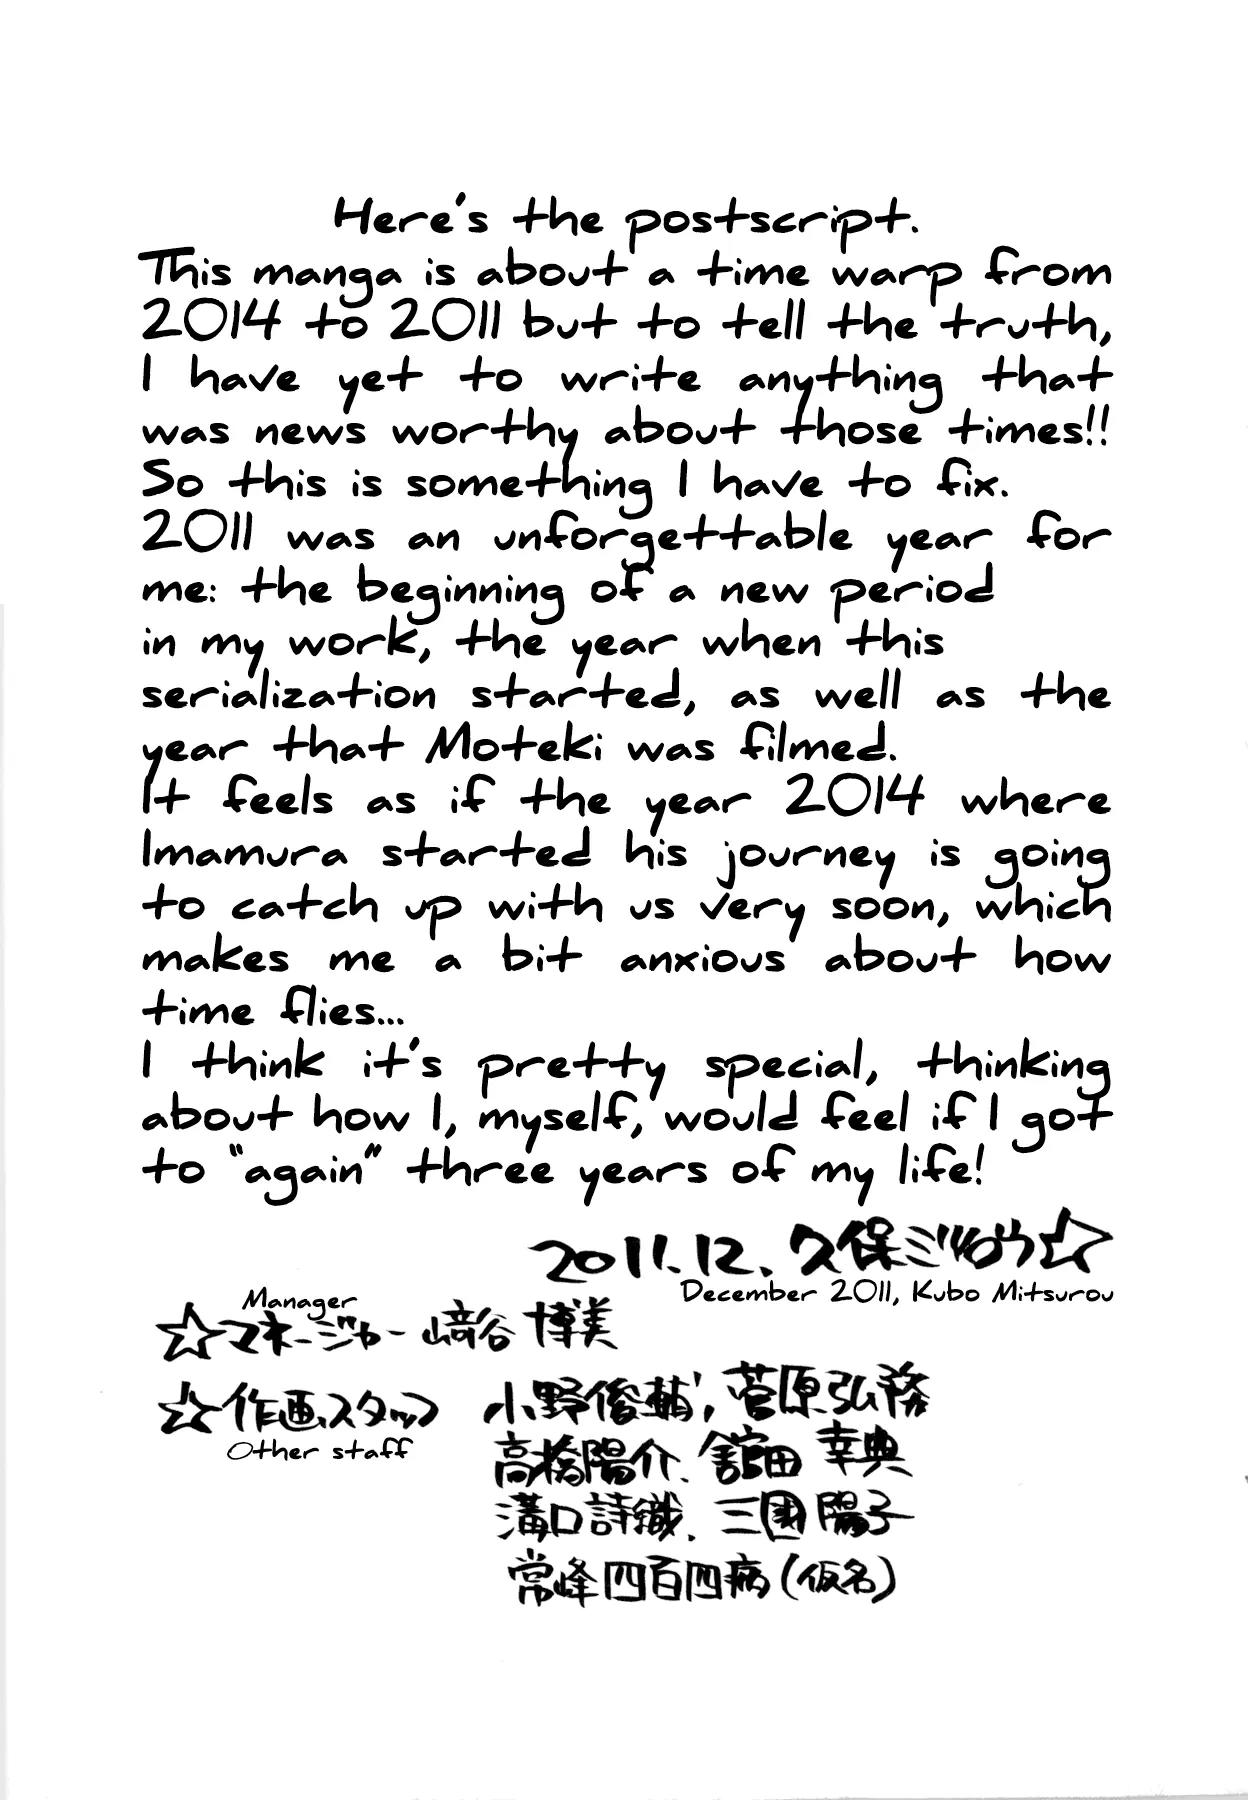 Here's the postscript.
This manga is about a time warp from
2014 to 2011 but to tell the truth,
I have yet to write anything that
was news worthy about those times!!
So this is something I have to fix.
2011 was an unforgettable year for
me: the beginning of a new period
in my work, the year when this
serialization started, as well as the
year that Moteki was filmed.
It feels as if the year 2014 where
Imamura started his journey is going
to catch up with us very soon, which
makes me a bit anxious about how
time flies...
I think it's pretty special, thinking
about how I, myself, would feel if I got
to "again" three years of my life!
2011.12. 久保ミツロウ☆
December 2011, Kubo Mitsurou
Manager
☆マネージャー 﨑谷 博美
☆作画スタッフ 小野俊輔, 菅原弘務
Other staff
高橋陽介. 舘田 幸典
溝口詩織. 三國陽子
常峰四百四病(仮名)